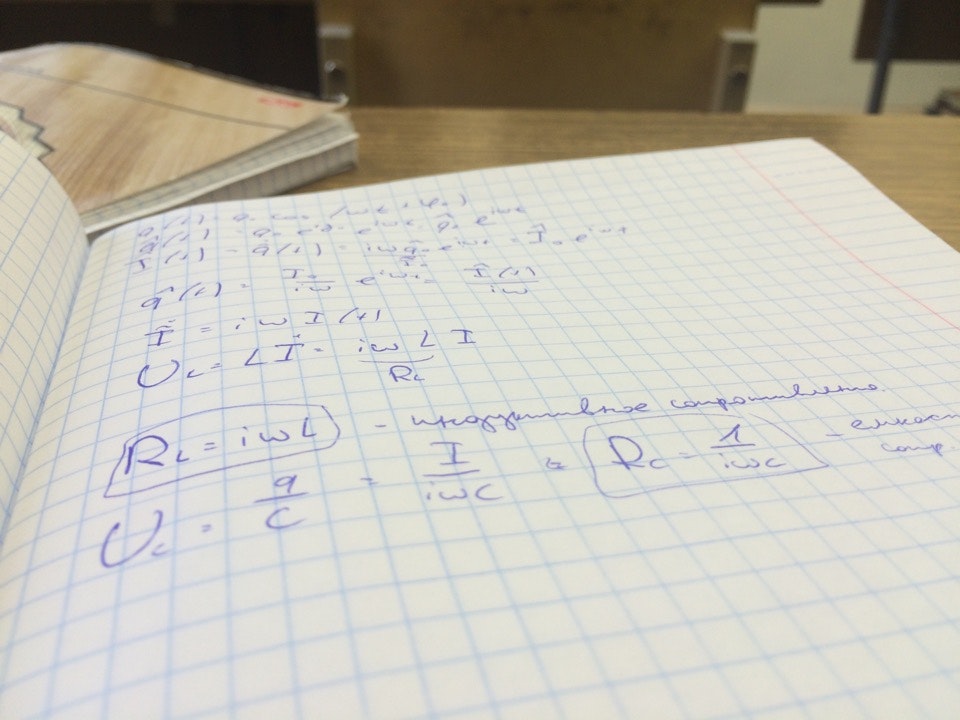 q(t) = q₀ cos (ωt + φ₀)
q̂(t) = q₀ e^{iφ₀} e^{iωt} = q̂₀ e^{iωt}
Î(t) = q̇(t) = iωq̂₀ e^{iωt} = Î₀ e^{iωt}
Î₀
q̂(t) = Î₀/iω e^{iωt} = Î(t)/iω
İ = iω I(t)
U_L = L İ = iωL I
R_L
R_L = iωL - индуктивное сопротивление.
U_c = q/C = I/iωC = R_C = 1/iωC - емкост
сопр.